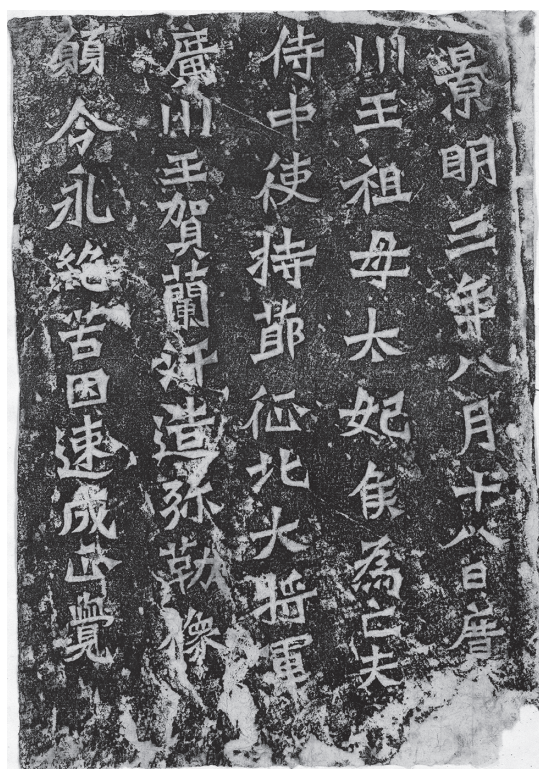 景明三年八月十八日廣
川王祖母太妃侯為亡夫
侍中使持節征北大將軍
廣川王賀蘭汗造弥勒像
願今永絶苦因速成正覺